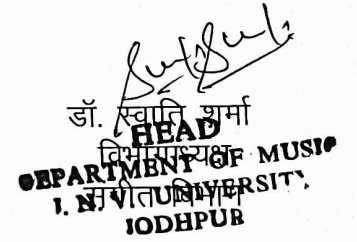 डॉ. स्वाति शर्मा
HEAD
विभागाध्यक्ष
DEPARTMENT OF MUSIC
संगीत विभाग
J. N. V. UNIVERSITY
JODHPUR